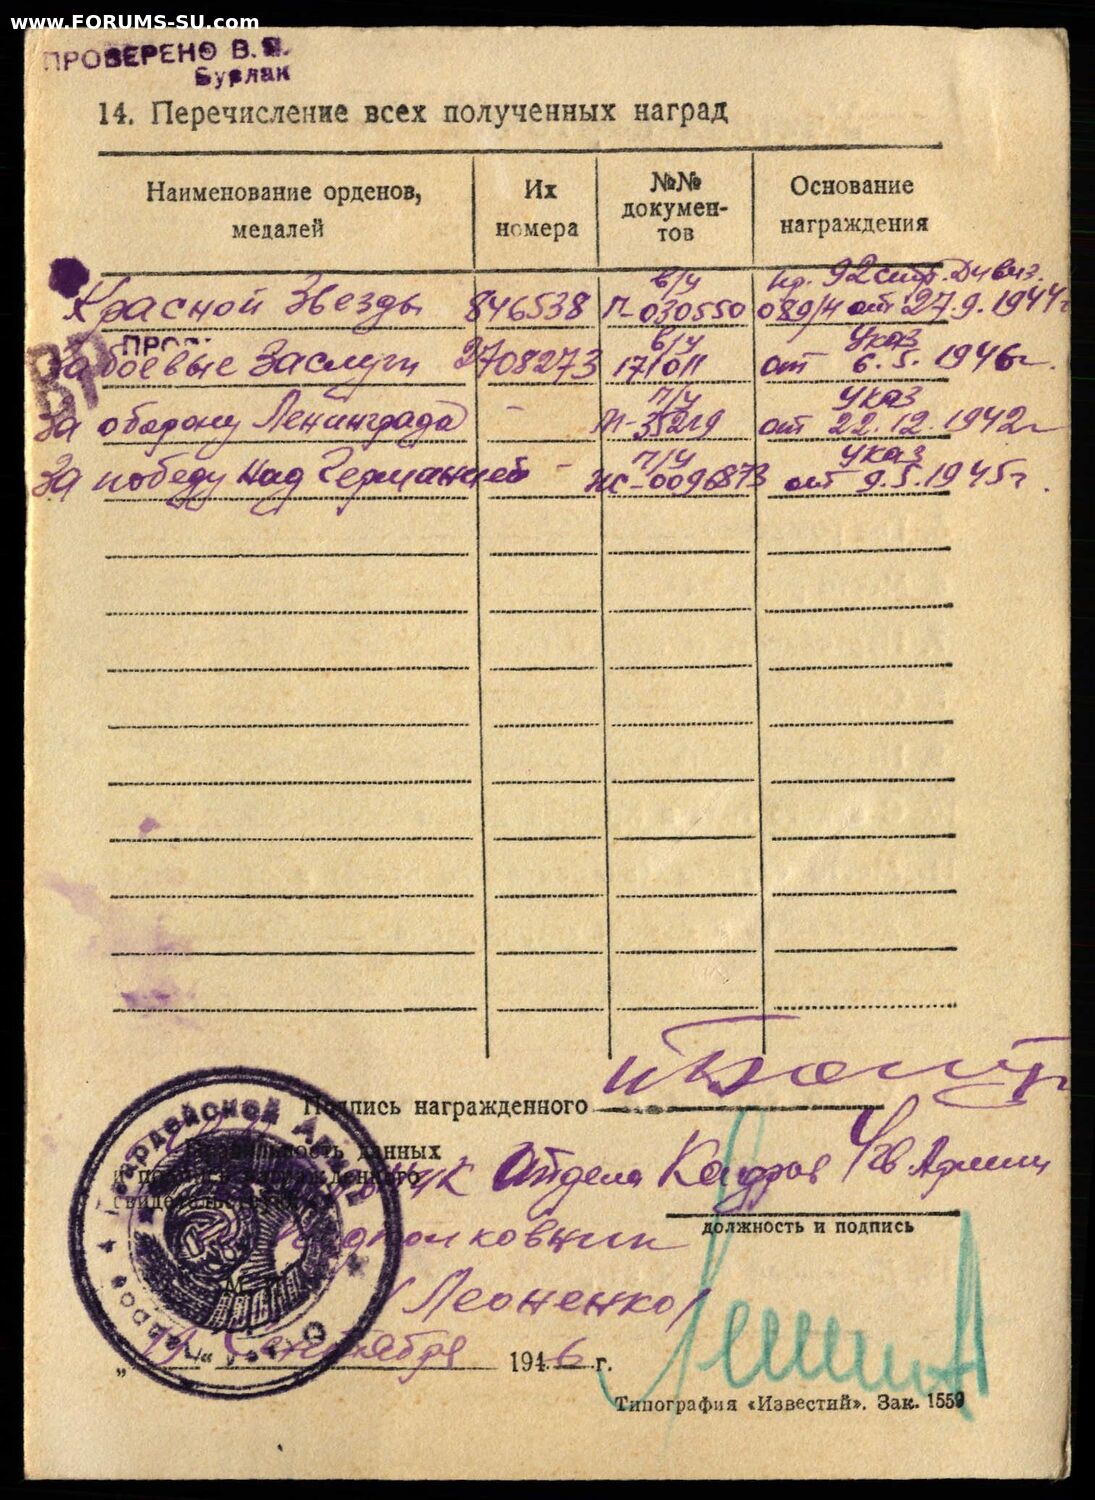 www.FORUMS-SU.com
ПРОВЕРЕНО В. Я.
Бурлак
14. Перечисление всех полученных наград
Наименование орденов, медалей
Их номера
№№ докумен-тов
Основание награждения
Красной Звезды 846538 в/ч П-030550 пр. 92 стр. Дивиз. 089/Н от 27.9.1944г
За боевые заслуги 2708273 в/ч 171011 Указ от 6.5.1946г.
За оборону Ленинграда - п/ч М-35219 Указ от 22.12.1942г
За победу над Германией - п/ч ЖС-0096873 Указ от 9.5.1945г.
Подпись награжденного
Правильность данных
и подпись награжденного
свидетельствую
Отдела Кадров Гв Армии
должность и подпись
Подполковник
Леоненко
М. П.
Гвардейской Армии
Отдел кадров
„ “ Сентября 1946 г.
Типография «Известий». Зак. 1559